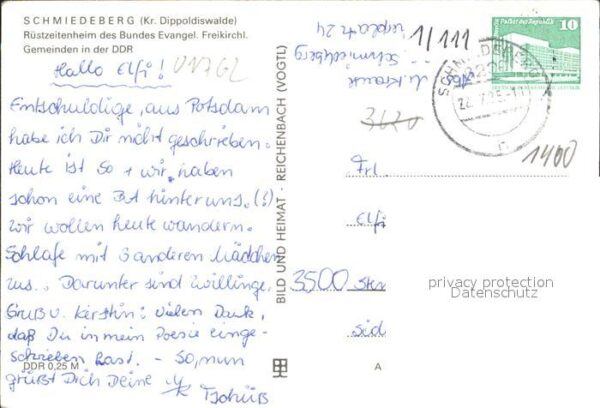 SCHMIEDEBERG (Kr. Dippoldiswalde)
Rüstzeitenheim des Bundes Evangel. Freikirchl.
Gemeinden in der DDR
Hallo Elfi!
Entschuldige, aus Potsdam
habe ich Dir nicht geschrieben.
Heute ist So + wir haben
schon eine hinter uns. (!)
wir wollen heute wandern.
Schlafe mit 3 anderen Mädchen
zus.. Darunter sind Zwillinge.
Gruß v. Kerstin! Vielen Dank,
daß Du in mein Poesie einge-
schrieben hast. - So, nun
grüßt Dich Deine
Tschüß
DDR 0,25 M
BILD UND HEIMAT · REICHENBACH (VOGTL)
1/111
Schmiedeberg
Palast der Republik
10
DDR
SCHMIEDEBERG
3620
1400
Frl.
Elfi
3500
Süd
privacy protection
Datenschutz
A